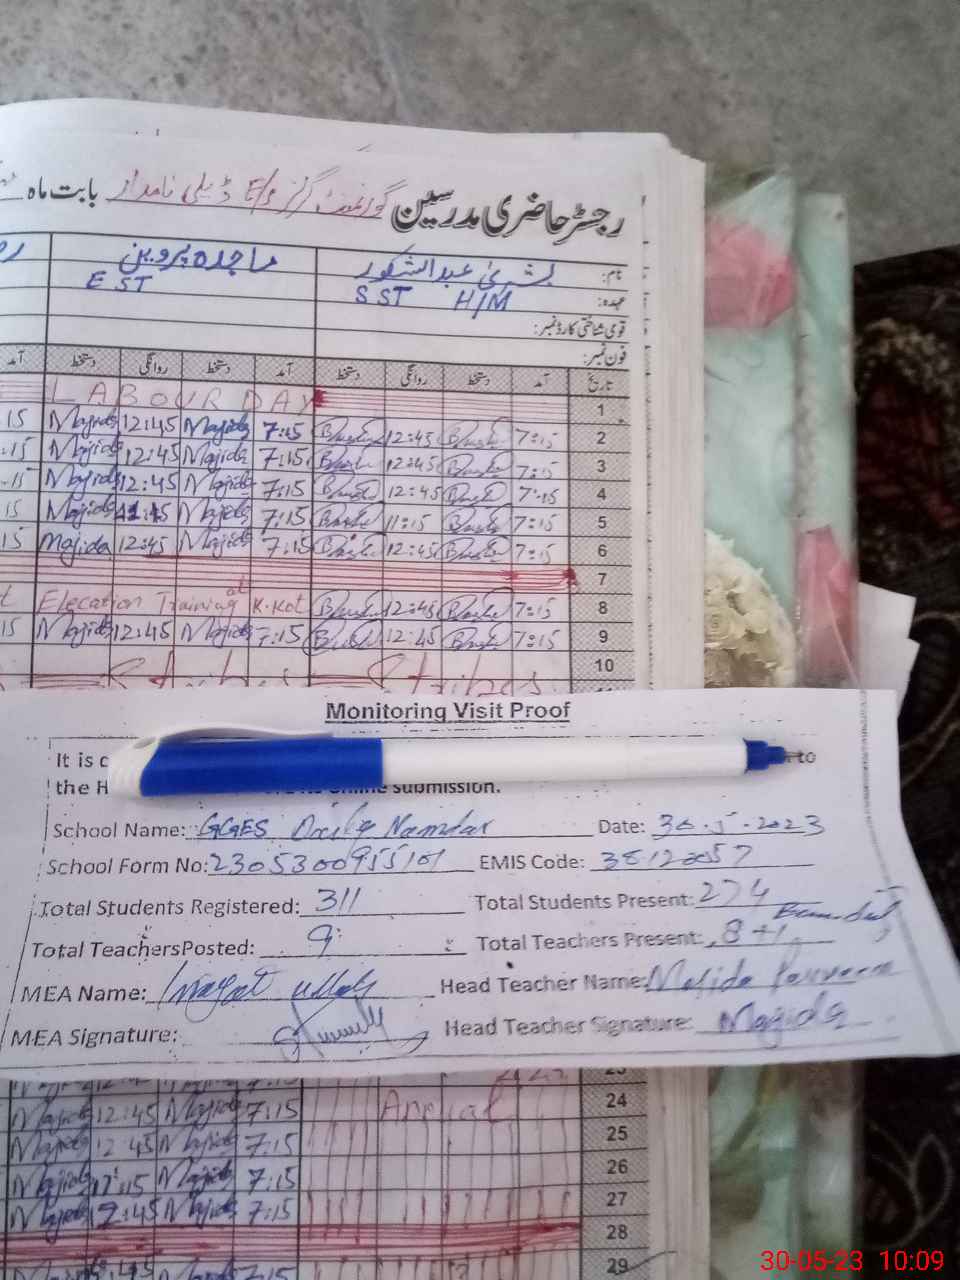 رجسٹر حاضری مدرسین گورنمنٹ گرلز E/S ڈیلی نامدار بابت ماہ
نام: بشریٰ عبدالشکور ماجدہ پروین
عہدہ: SST H/M EST
قومی شناختی کارڈ نمبر:
فون نمبر:
تاریخ آمد دستخط روانگی دستخط آمد دستخط روانگی دستخط آمد
LABOUR DAY 1
15 Majida 12:45 Majida 7:15 12:45 7:15 2
:15 Majida 12:45 Majida 7:15 12:45 7:15 3
-15 Majida 12:45 Majida 7:15 12:45 7:15 4
15 Majida Majida 7:15 11:15 7:15 5
15 Majida 12:45 Majida 7:15 12:45 7:15 6
7
Elecation Training at K.Kot 12:45 7:15 8
15 Majida 12:45 Majida 7:15 12:45 7:15 9
10
Monitoring Visit Proof
It is to
the H submission.
School Name: GGES Daily Namdar Date: 30.5.2023
School Form No: EMIS Code:
Total Students Registered: 311 Total Students Present: 274
Total Teachers Posted: 9 Total Teachers Present: 8+1
MEA Name: Inayat ullah Head Teacher Name: Majida Parveen
MEA Signature: Head Teacher Signature: Majida
23
Majida 12:45 Majida 7:15 24
Majida 12:45 Majida 7:15 25
Majida Majida 7:15 26
Majida 12:45 Majida 7:15 27
28
Majida 12:45 Majida 7:15 29
30-05-23 10:09